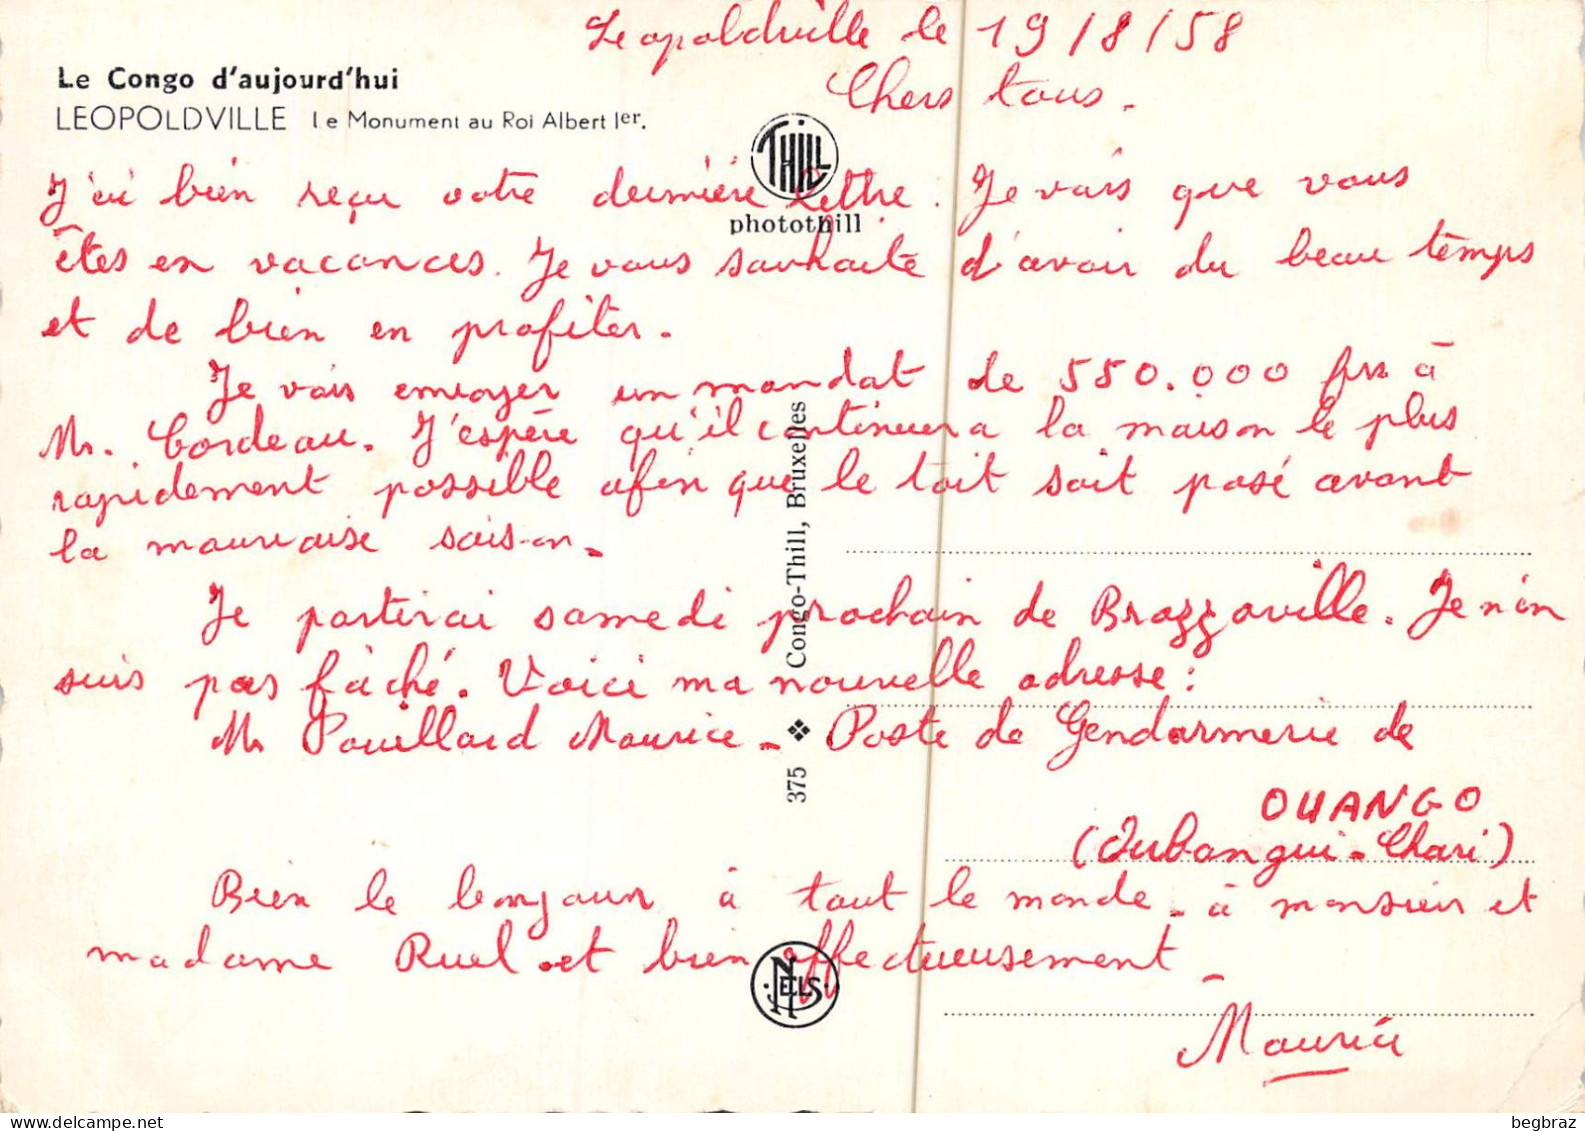 Leopoldville le 19/8/58
Le Congo d'aujourd'hui
LEOPOLDVILLE Le Monument au Roi Albert Ier.
Chers tous.
THILL
photothill
J'ai bien reçu votre dernière lettre. Je vois que vous
êtes en vacances. Je vous souhaite d'avoir du beau temps
et de bien en profiter.
Je vais envoyer un mandat de 550.000 frs à
Mr. Cordeau. J'espère qu'il continuera la maison le plus
rapidement possible afin que le toit soit posé avant
la mauvaise saison.
Je partirai samedi prochain de Brazzaville. Je n'en
suis pas fâché. Voici ma nouvelle adresse :
Mr Pouillard Maurice - Poste de Gendarmerie de
OUANGO
(Oubangui-Chari)
Bien le bonjour à tout le monde - à monsieur et
madame Ruel et bien affectueusement -
Maurice
375 ❖ Congo-Thill, Bruxelles
NELS
begbraz